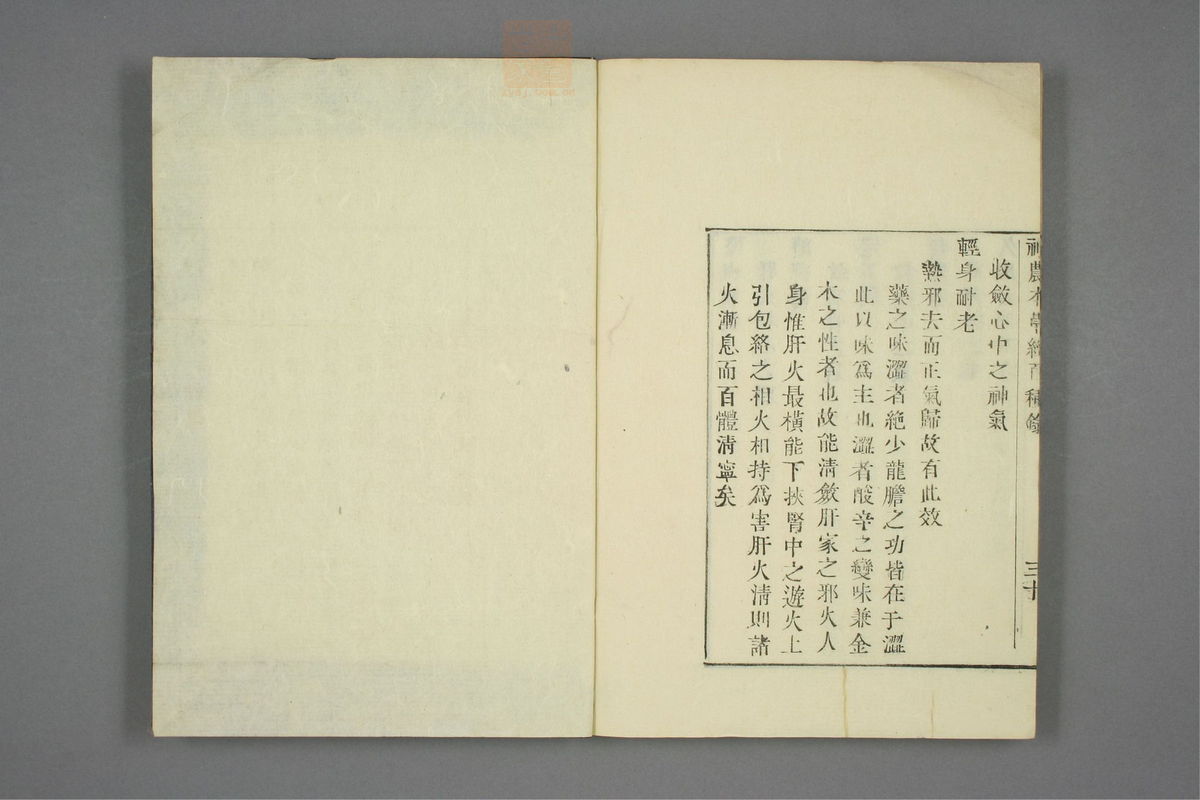 神農本草經百種錄
三十
收斂心中之神氣
輕身耐老
熱邪去而正氣歸故有此效
藥之味澀者絶少龍膽之功皆在于澀
此以味爲主也澀者酸辛之變味兼金
木之性者也故能清斂肝家之邪火人
身惟肝火最橫能下挾腎中之遊火上
引包絡之相火相持爲害肝火淸則諸
火漸息而百體淸寧矣